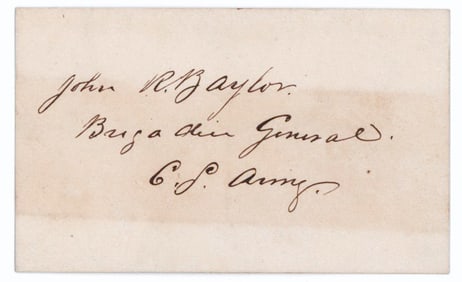 John R. Baylor.
Brigadier General.
C.S. Army.